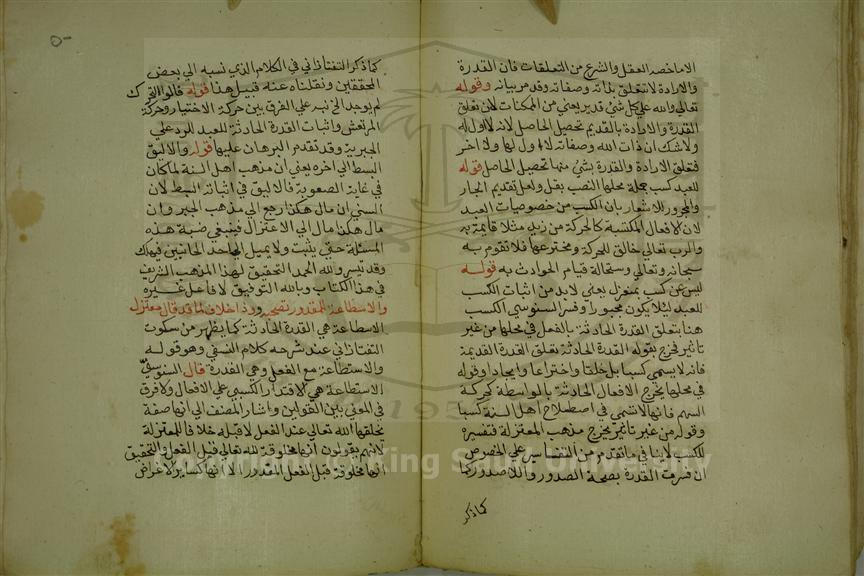 الا ما خصه العقل والشرع من التعلقات فان القدرة
والارادة لا تتعلق بذاته وصفاته وقد مر بيانه وقوله
تعالى والله على كل شئ قدير يعني من الممكنات لان تعلق
القدرة والارادة بالقديم تحصيل الحاصل لانه لا اول له
ولا شك ان ذات الله وصفاته لا اول لها ولا اخر
فتعلق الارادة والقدرة بشئ منها تحصيل الحاصل قوله
للعبد كسب جملة محلها النصب بقل ولعل تقديم الجار
والمجرور للاشعار بان الكسب من خصوصيات العبد
لان الافعال المكتسبة كالحركة من زيد مثلا قايمة به
والرب تعالى خالق للحركة ومخترعها فلا تقوم به
سبحانه وتعالى وستحالة قيام الحوادث به قوله
ليس عن كسب بمنعزل يعني لابد من اثبات الكسب
للعبد ليلا يكون مجبورا وفسر السنوسي الكسب
هنا بتعلق القدرة الحادثة بالفعل في محلها من غير
تاثير فخرج بقوله القدرة الحادثة تعلق القدرة القديمة
فانه لا يسمى كسبا بل خلقا واختراعا وايجادا وقوله
في محلها يخرج الافعال الحادثة بالواسطة كحركة
السهم فانها لا تسمى في اصطلاح اهل السنة كسبا
وقوله من غير تاثير يخرج مذهب المعتزلة فتفسيره
للكسب لا ينافي ما تقدم من التفاسير على الخصوص
ان فسرت القدرة بصحة الصدور واللا صدور كما
كما ذكر
٥٠
كما ذكر التفتازاني في الكلام الذي نسبه الى بعض
المحققين ونقلناه عنه قبيل هذا قوله فالو الترك
لم يوجد الخ نبه على الفرق بين حركة الاختيار وحركة
المرتعش واثبات القدرة الحادثة للعبد للرد على
الجبرية وقد تقدم البرهان عليها قوله والاليق
البسط الى اخره يعني ان مذهب اهل السنة لما كان
في غاية الصعوبة فالاليق في اثباته البسط لان
السني ان مال هكذا رجع الى مذهب الجبر وان
مال هكذا مال الى الاعتزال فينبغي ضبط هذه
المسئلة حتى يثبت ولا يميل لاحد الجانبين فيهلك
وقد تيسر ولله الحمد التحقيق لهذا المذهب الشريف
في هذا الكتاب وبالله التوفيق لا فاعل غيره
والاستطاعة للمقدور تصحبه وذا خلاف لما قد قال معتزل
الاستطاعة هي القدرة الحادثة كما يظهر من سكوت
التفتازاني عند شرحه كلام النسفي وهو قوله
والاستطاعة مع الفعل وهي القدرة قال السنوسي
الاستطاعة هي الاقتدار الكسبي على الافعال ولا فرق
في المعنى بين القولين واشار المصنف الى انها صفة
يخلقها الله تعالى عند الفعل لا قبله خلافا للمعتزلة
لانهم يقولون انها مخلوقة لله تعالى قبل الفعل والتحقيق
انها مخلوقة قبل الفعل المقدور الا انها كساير الاعراض
Copyright © King Saud University